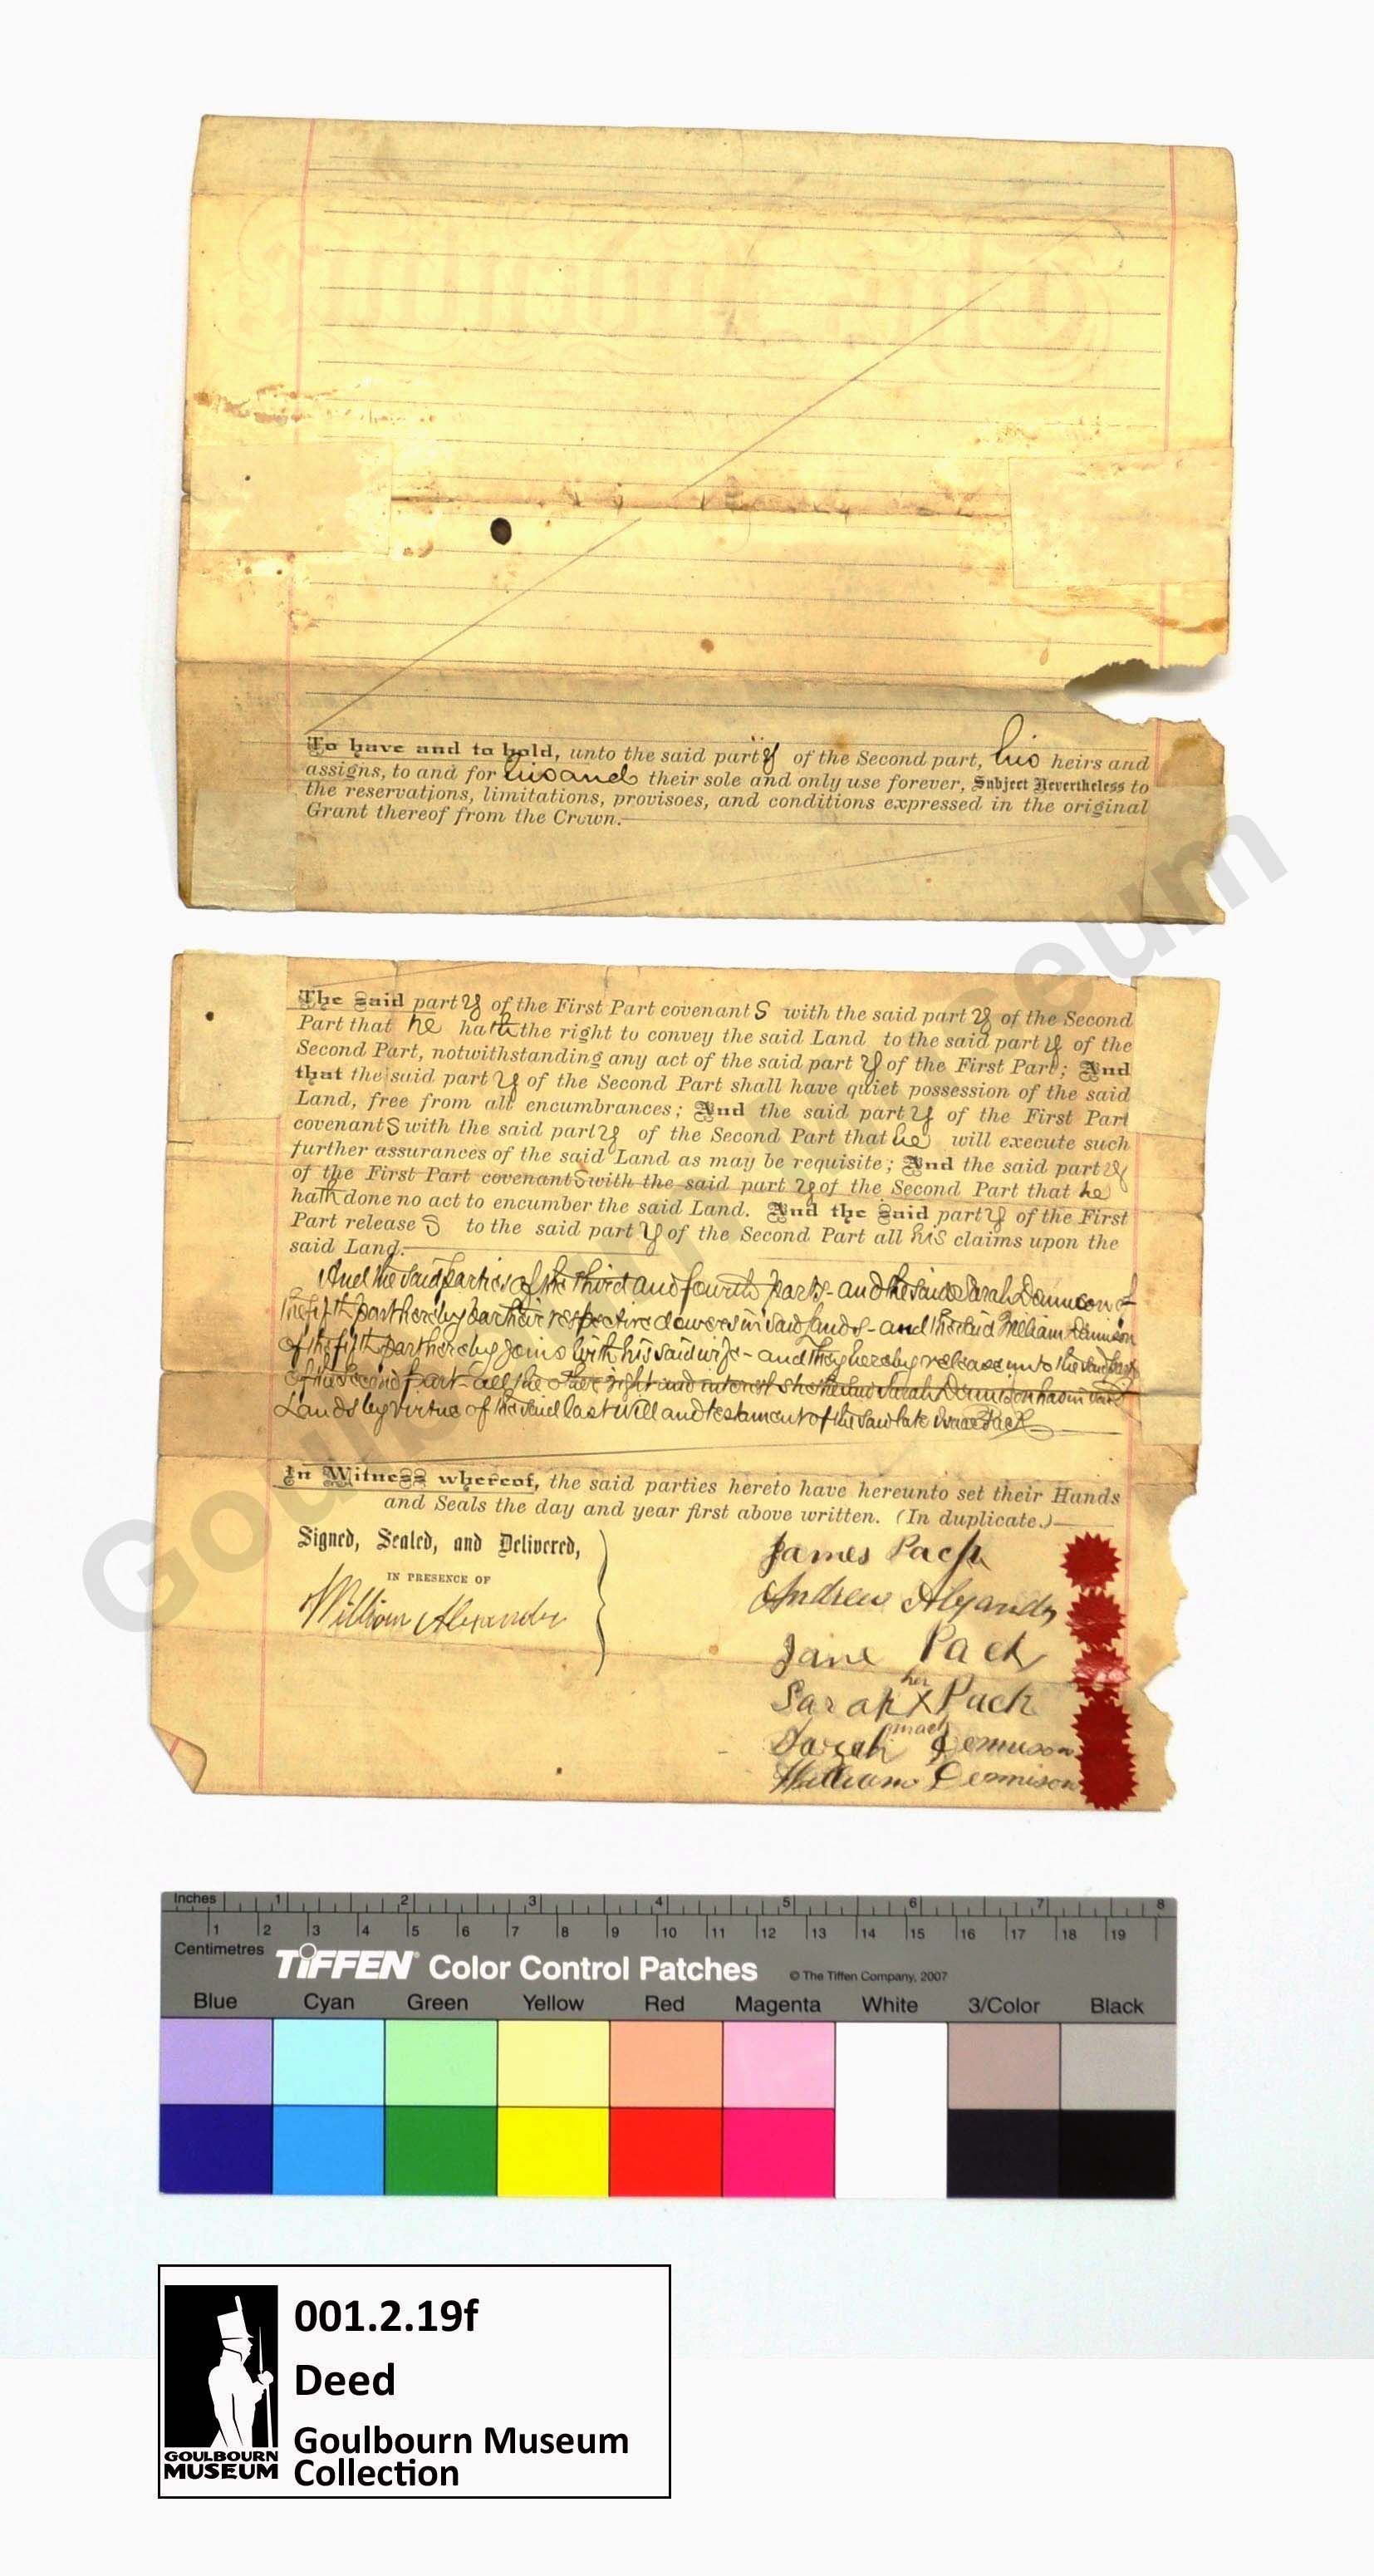 To have and to hold, unto the said party of the Second part, his heirs and
assigns, to and for his and their sole and only use forever, Subject Nevertheless to
the reservations, limitations, provisoes, and conditions expressed in the original
Grant thereof from the Crown.
The Said party of the First Part covenantS with the said party of the Second
Part that he hath the right to convey the said Land to the said party of the
Second Part, notwithstanding any act of the said party of the First Part; And
that the said party of the Second Part shall have quiet possession of the said
Land, free from all encumbrances; And the said party of the First Part
covenantS with the said party of the Second Part that he will execute such
further assurances of the said Land as may be requisite; And the said party
of the First Part covenantS with the said party of the Second Part that he
hath done no act to encumber the said Land. And the Said party of the First
Part releaseS to the said party of the Second Part all his claims upon the
said Land.
And the said parties of the third and fourth parts - and the said Sarah Dennison of
the fifth part hereby bar their respective dowers in said lands - and the said William Dennison
of the fifth part hereby joins with his said wife - and they hereby release unto the said party
of the second part all the right and interest she the said Sarah Dennison has in said
Lands by virtue of the said last will and testament of the said late Isaac Pack
In Witness whereof, the said parties hereto have hereunto set their Hands
and Seals the day and year first above written. (In duplicate.)
Signed, Sealed, and Delivered,
IN PRESENCE OF
William Alexander
James Pack
Andrew Alexander
Jane Pack
her
Sarah X Pack
mark
Sarah Dennison
William Dennison
Goulbourn Museum
Inches 1 2 3 4 5 6 7 8
1 2 3 4 5 6 7 8 9 10 11 12 13 14 15 16 17 18 19
Centimetres
TIFFEN Color Control Patches © The Tiffen Company, 2007
Blue Cyan Green Yellow Red Magenta White 3/Color Black
001.2.19f
Deed
Goulbourn Museum
Collection
GOULBOURN
MUSEUM